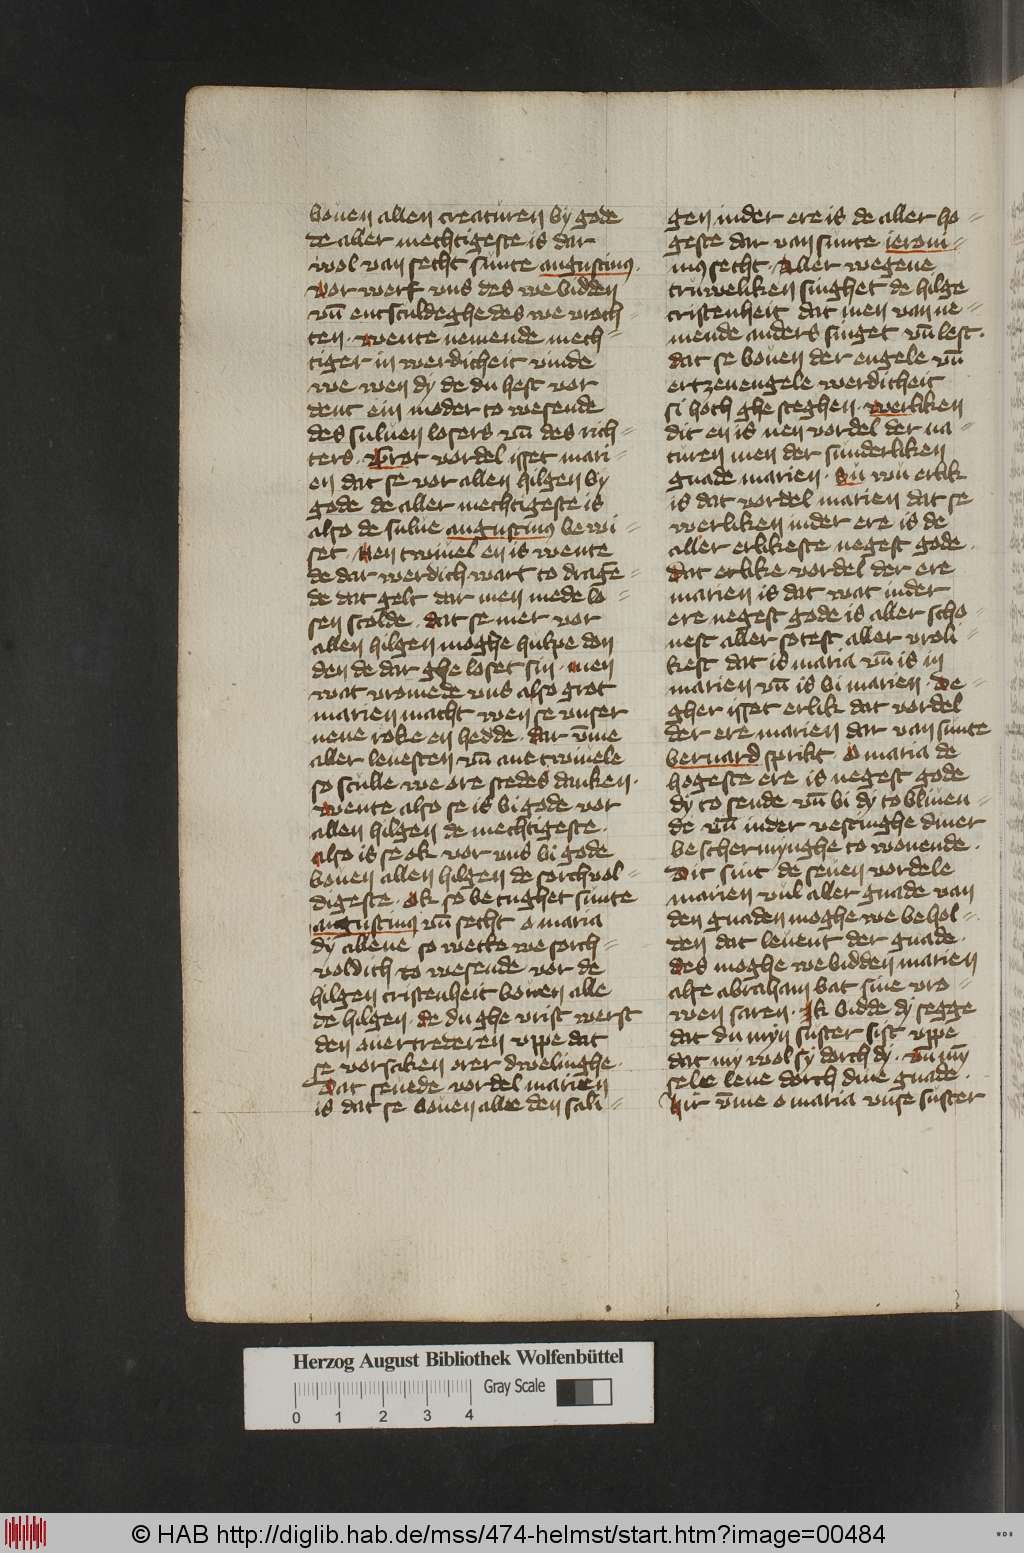 bouen allen creaturen by gode
de aller mechtigeste is dar
wol van secht sunte augustinus.
vor werf vns des we bidden
vn̄ entsculdeghe des we vroch-
ten. wente nemende mech-
tiger in werdicheit vinde
we wen dy de du hest vor
dent ein moder to wesende
des suluen losers vn̄ des rich-
ters. Grot vordel isset mari-
en dat se vor allen hilgen by
gode de aller mechtigeste is
also de sulue augustinus bewi-
set. Nen twiuel en is wente
de dar werdich wart to drage-
de dat gelt dar men mede lo-
sen scolde. dat se mer vor
allen hilgen moghe hulpe don
den de dar ghe loset sin. men
wat vromede vns also grot
marien macht wen se vnser
nene roke en hedde. dar vm̄e
aller leuesten vn̄ ane twiuele
so sculle we ore stedes danken.
wente also se is bi gode vor
allen hilgen de mechtigeste.
also is se ok vor vns bi gode
bouen allen hilgen de sorchvol-
digeste. ok so be tughet sunte
augustinus vn̄ secht o maria
dy allene so wete we sorch-
voldich to wesende vor de
hilgen cristenheit bouen alle
de hilgen. de du ghe vrist werst
den ouertrederen vppe dat
se vorsaken orer dwelinghe.
Dat seuede vordel marien
is dat se bouen alle den sali-
gen inder ere is de aller ho-
geste dar van sunte iero͞m-
mus secht. Aller wegene
truweliken singhet de hilge
cristenheit dat men van ne-
mende anders singet vn̄ lest.
dat se bouen der engele vn̄
ertzenengele werdicheit
si hoch ghe steghen. werliken
dit en is nen vordel der na-
turen men der sunderliken
gnade marien. Su wu erlik
is dat vordel marien dat se
werliken inder ere is de
aller erlikeste negest gode.
dat erlike vordel der ere
marien is dat wat inder
ere negest gode is aller scho-
nest aller sotest aller vroli-
kest dat is maria vn̄ is in
marien vn̄ is bi marien. De-
gher isset erlik dat vordel
der ere marien dar van sunte
bernard sprikt. O maria de
hogeste ere is negest gode
dy to sende vn̄ bi dy to bliuen-
de vn̄ inder vestinghe diner
beschermynghe to wonende.
Dit sint de seuen vordele
marien vul aller gnade van
den gnaden moghe we behol-
den dat leuent der gnade.
des moghe we bidden marien
alse abraham bat sine vro-
wen saren. Ik bidde dy segge
dat du myn suster sist vppe
dat my wol sy dorch dy. vn̄ my̅
sele leue dorch dine gnade.
Hir vm̄e o maria vnse suster
Herzog August Bibliothek Wolfenbüttel
Gray Scale
0 1 2 3 4
© HAB http://diglib.hab.de/mss/474-helmst/start.htm?image=00484
WDB